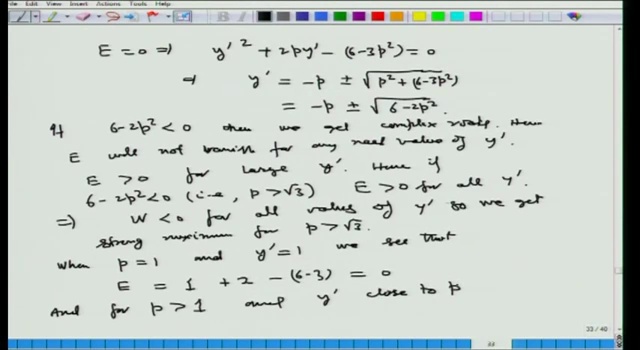 File Edit View Insert Actions Tools Help
E = 0 ⇒ y'² + 2py' - (6-3p²) = 0
⇒ y' = -p ± √(p² + (6-3p²))
= -p ± √(6-2p²)
If 6-2p² < 0 then we get complex roots. Hence
E will not vanish for any real value of y'.
E > 0 for large y'. Hence if
6-2p² < 0 (i.e., p > √3) E > 0 for all y'.
⇒ W < 0 for all values of y' so we get
strong maximum for p > √3.
When p = 1 and y' = 1 we see that
E = 1 + 2 - (6-3) = 0
And for p > 1 and y' close to p
33 / 40
33